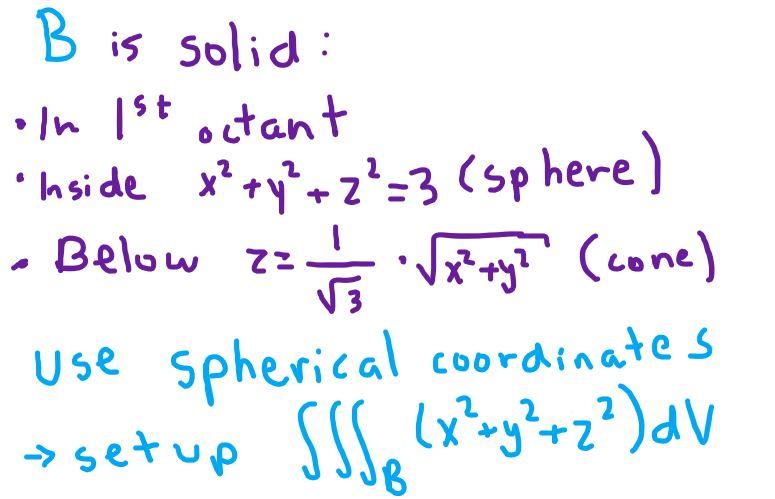 B is solid:
• In 1ˢᵗ octant
• Inside x² + y² + z² = 3 (sphere)
• Below z = 1/√3 · √(x²+y²) (cone)
use spherical coordinates
→ set up ∭_B (x²+y²+z²) dV